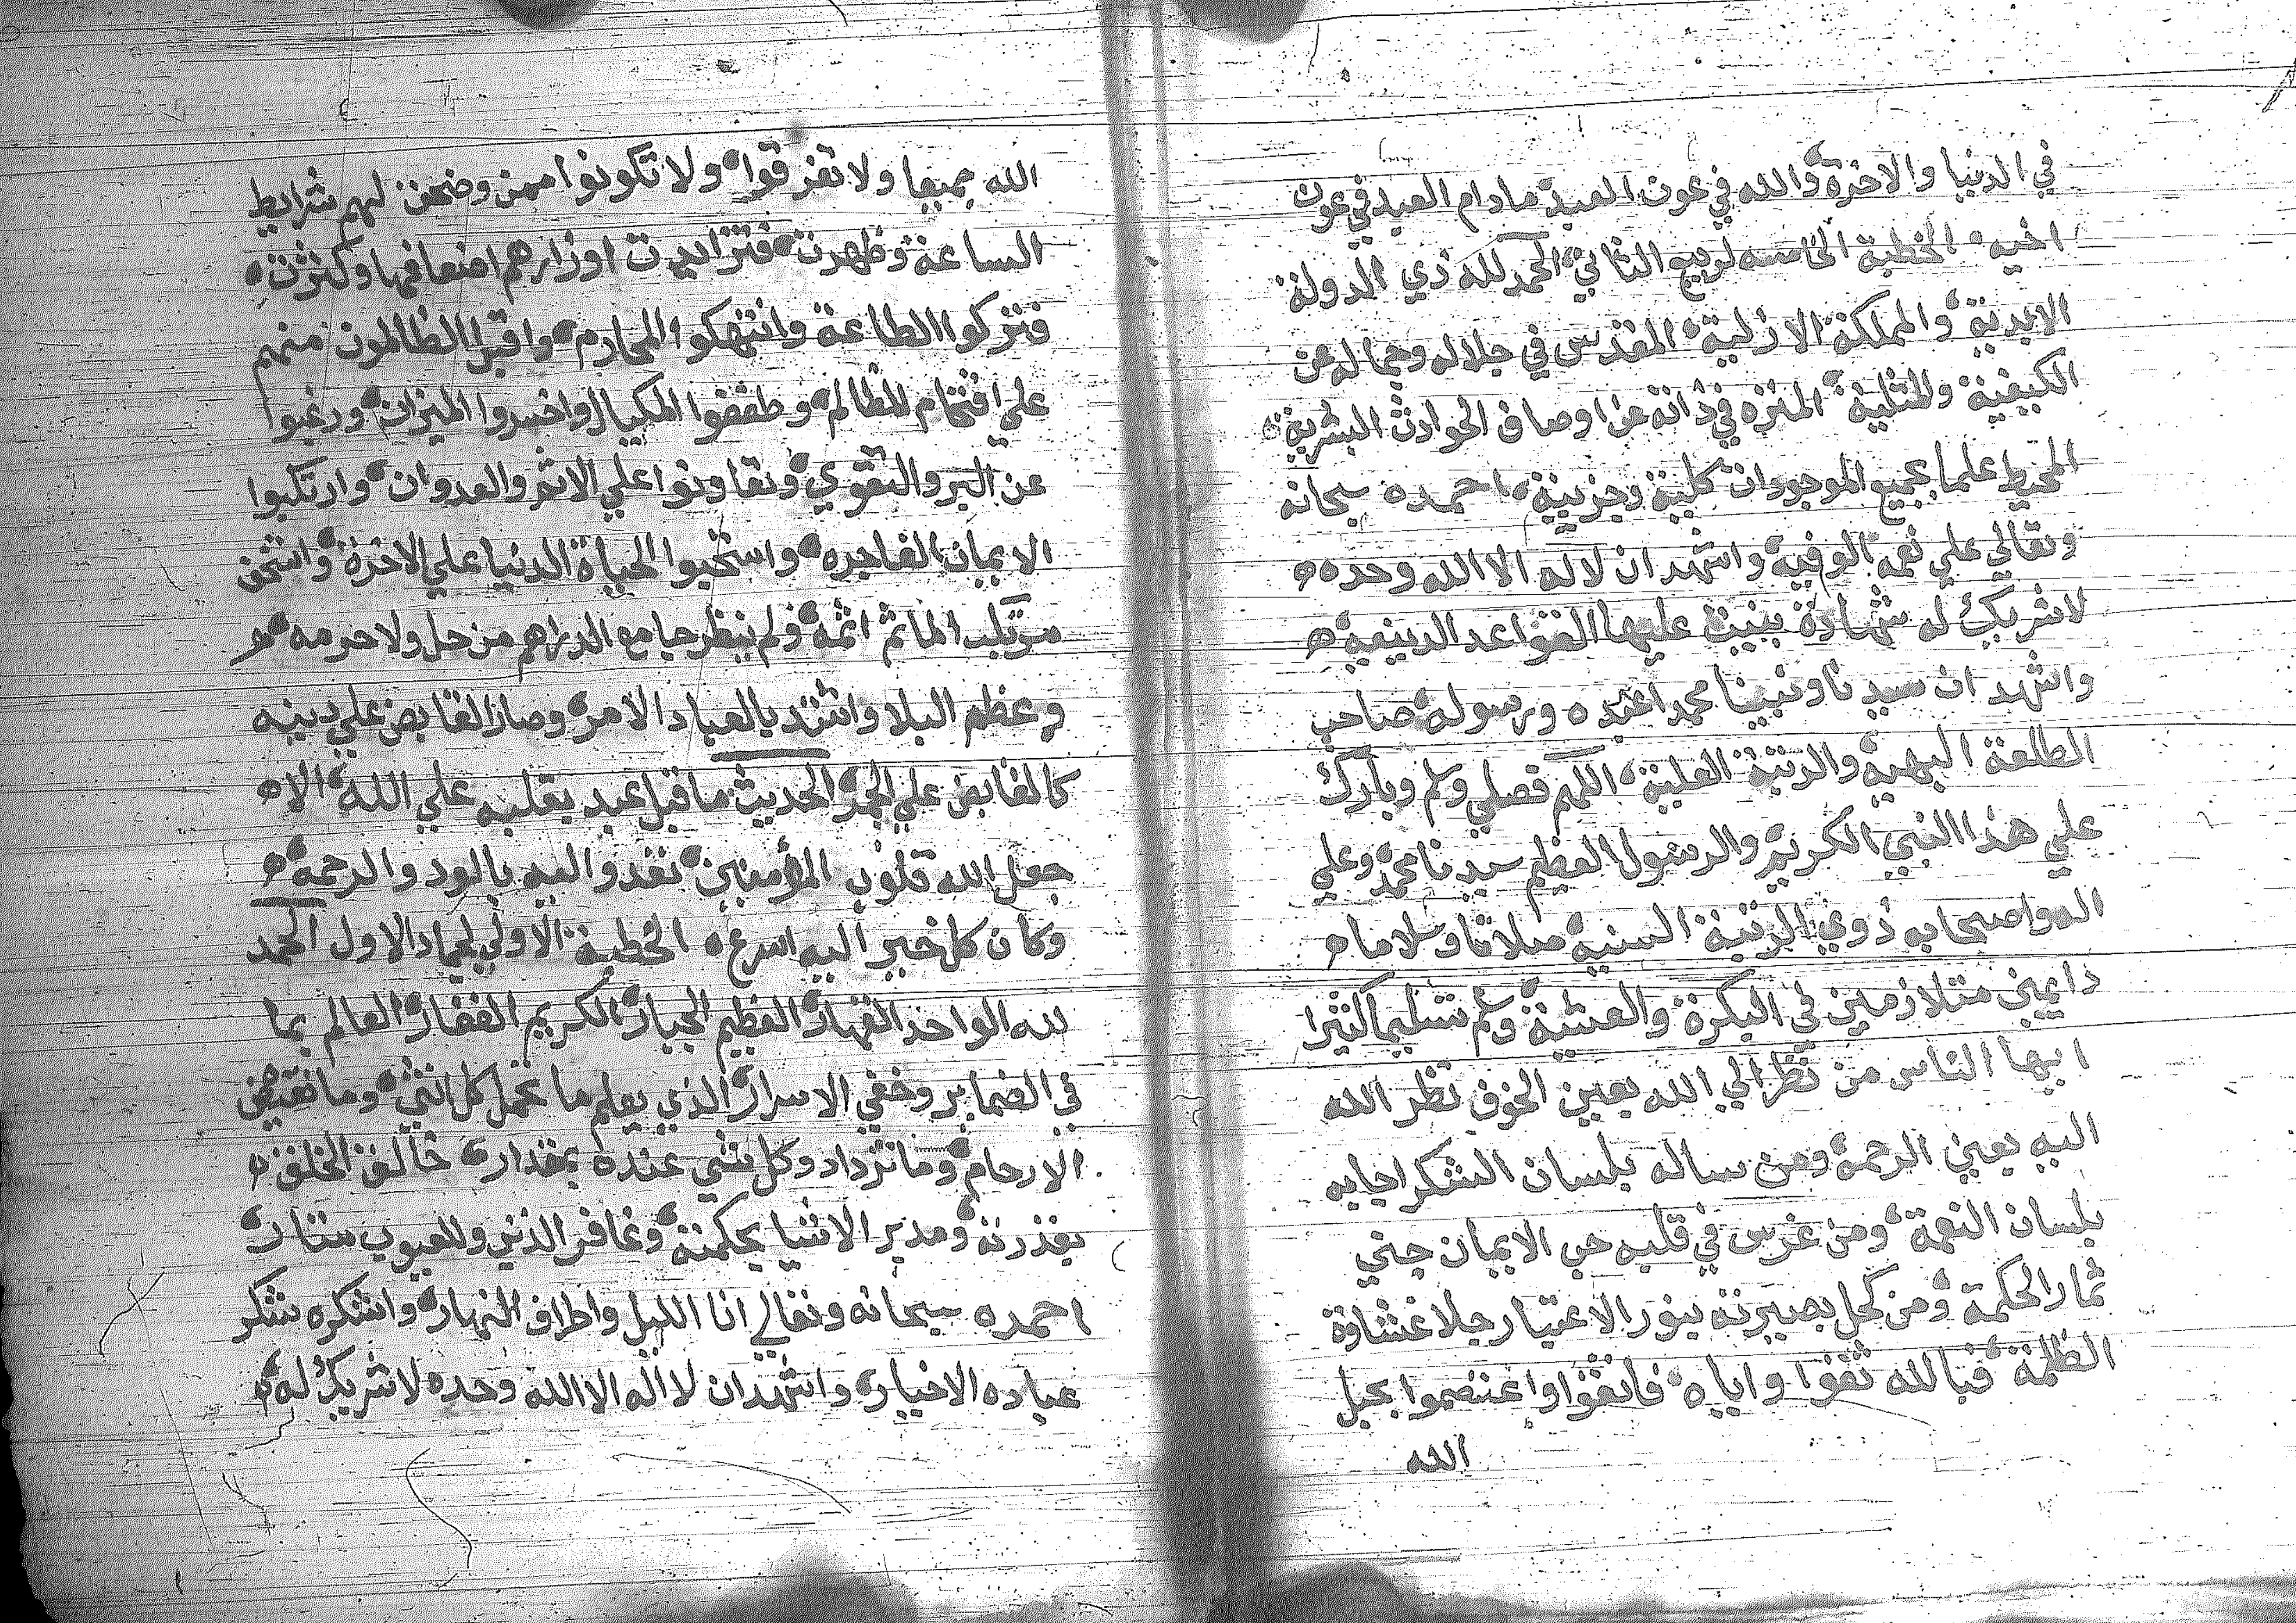 في الدنيا والاخرة والله في عون العبد مادام العبد في عون
اخيه الخطبة الخامسه لربيع الثاني الحمد لله ذي الدولة
الابدية والمملكة الازلية المقدس في جلاله وجماله عن
الكيفية والمثلية المنزه في ذاته عن اوصاف الحوادث البشرية
المحيط علما بجميع الموجودات كلية وجزيية احمده سبحانه
وتعالي علي نعمه الوفية واشهد ان لا اله الا الله وحده
لاشريك له شهادة بنيت عليها القواعد الدينية
واشهد ان سيدنا ونبينا محمدا عبده ورسوله صاحب
الطلعة البهية والرتبة العلية اللهم فصلي وسلم وبارك
علي هذا النبي الكريم والرسول العظيم سيدنا محمد وعلي
اله واصحابه ذوي الرتبة السنية صلاتا وسلاما
دايمين متلازمين في البكرة والعشية وسلم تسليما كثيرا
ايها الناس من نظر الي الله بعين الخوف نظر الله
اليه بعين الرحمة ومن ساله بلسان الشكر اجابه
بلسان النعمة ومن غرس في قلبه حب الايمان جني
ثمار الحكمة ومن كحل بصيرته بنور الاعتبار جلا غشاوة
الظلمة فبالله ثقوا واياه فاتقوا واعتصموا بحبل
الله
الله جميعا ولا تفرقوا ولا تكونوا ممن وضحت لهم شرايط
الساعة وظهرت فتزايدت اوزارهم اضعافها وكثرت
وتركوا الطاعة وانتهكوا المحارم واقبل الظالمون منهم
علي اقتحام المظالم وطففوا المكيال واخسروا الميزان ورغبوا
عن البر والتقوي وتعاونوا علي الاثم والعدوان وارتكبوا
الايمان الفاجره واستحبوا الحياة الدنيا علي الاخرة
اثمه ولم ينظر جامع الدراهم من حل ولا حرمه
وعظم البلا واشتد بالعباد الامر وصار القابض علي دينه
كالقابض علي الجمر الحديث ما قبل عبد بقلبه علي الله الا
جعل الله قلوب المؤمنين تفدو اليه بالود والرحمة
وكان كل خير اليه اسرع الخطبة الاولي لجماد الاول الحمد
لله الواحد القهار العظيم الجبار الكريم الغفار العالم بما
في الضماير وخفي الاسرار الذي يعلم ما تحمل كل انثي وما تغيض
الارحام وما تزداد وكل شي عنده بمقدار خالق الخلق
بقدرته ومدبر الاشيا بحكمته وغافر الذنب وللعيوب ستار
احمده سبحانه وتعالي انا الليل واطراف النهار واشكره شكر
عباده الاخيار واشهد ان لا اله الا الله وحده لاشريك له